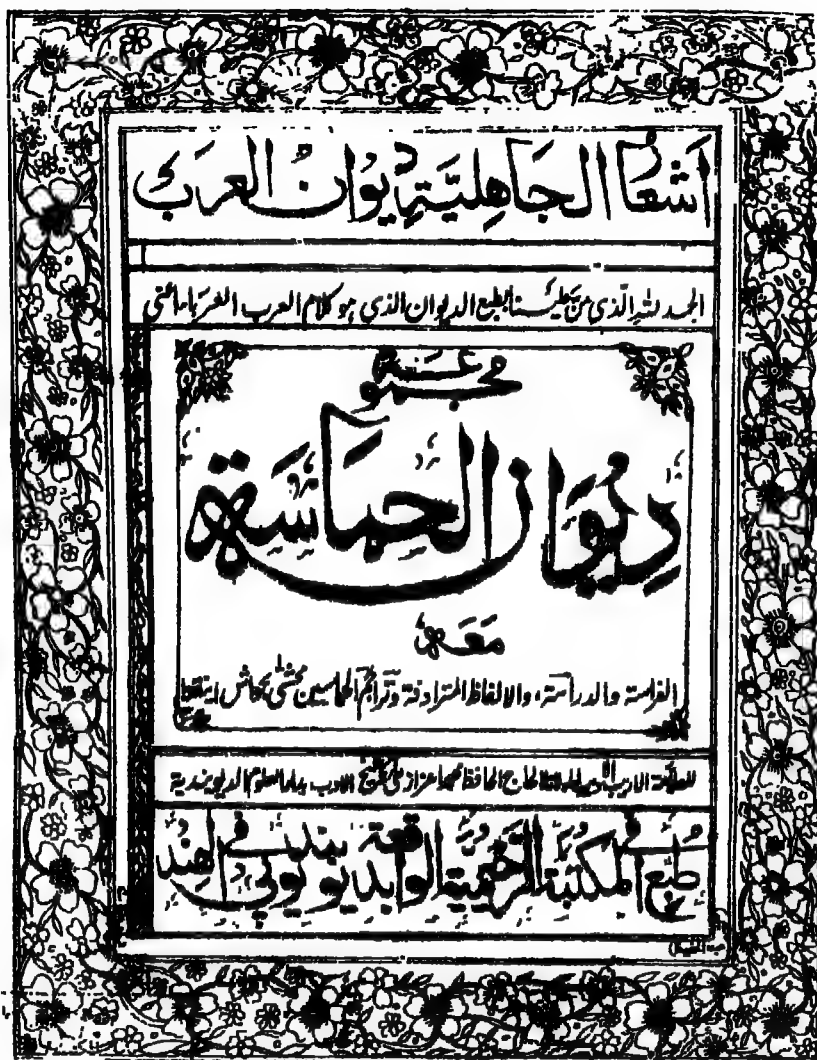 اَشعَارُ الجَاهِليَّةِ دِيوَانُ العَرَبِ
الحمد لله الّذي من علينا بطبع الديوان الذي هو كلام العرب العرباء
مجموعة
دِيوَان الحمَاسَة
مَعَ
الفراسة والدراسة، والالفاظ المترادفة وتراجم الحماسيين محشّى بحاش
للعلّامة الاديب الحاج الحافظ محمد اعزاز علي شيخ الادب بدار العلوم الديوبندية
طبع في المكتبة الرحيمية الواقعة ببلدة ديوبند يوپي في الهند